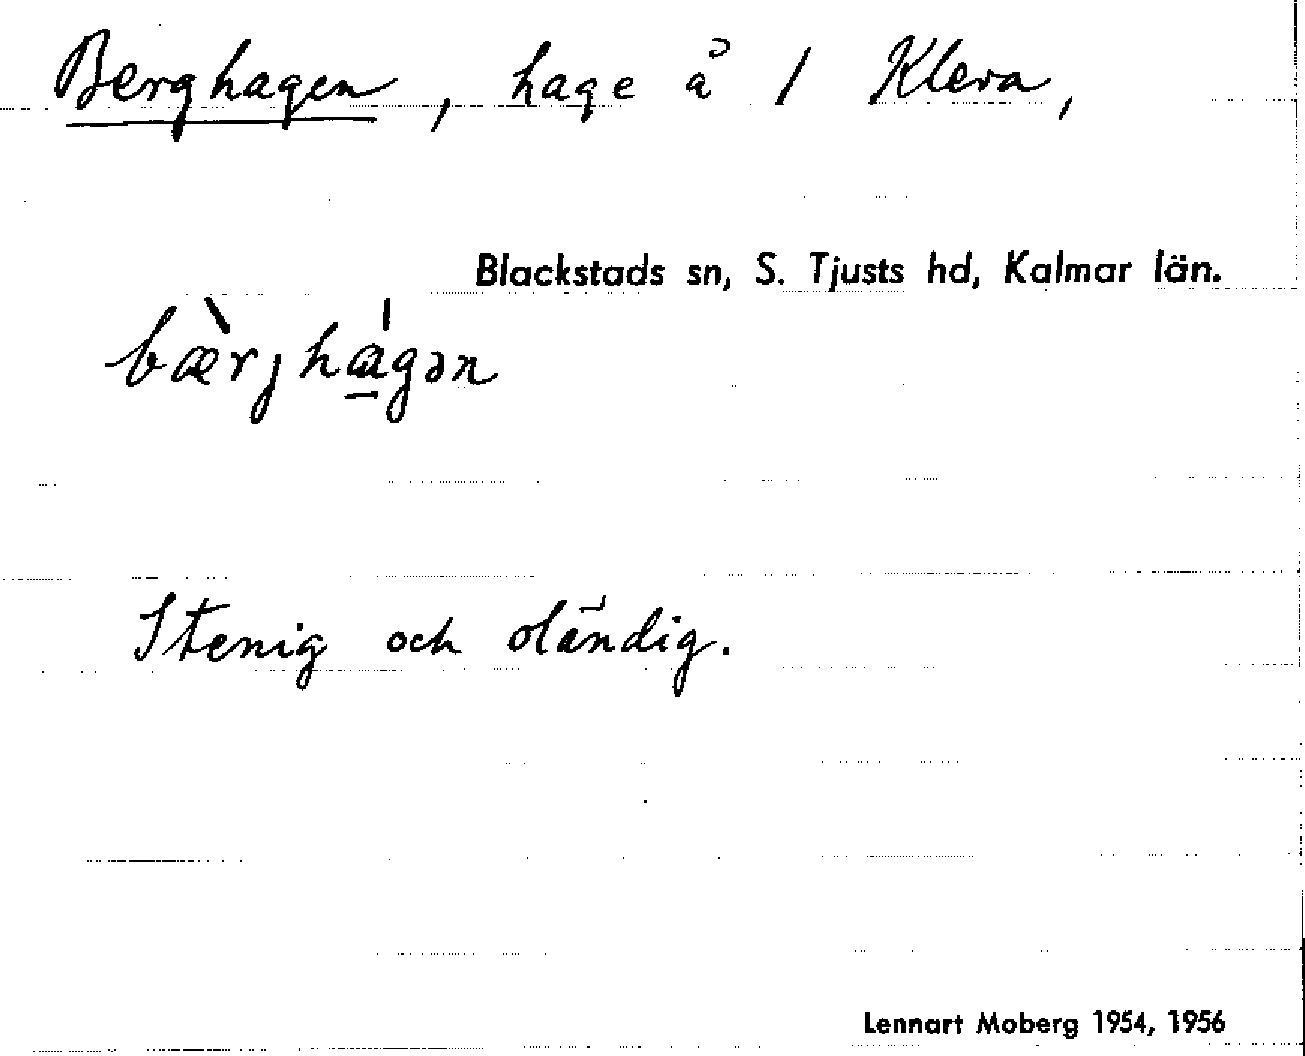 Berghagen, hage å 1 Kleva,
Blackstads sn, S. Tjusts hd, Kalmar län.
bæ̀rjhɑ̲́gən
Stenig och oländig.
Lennart Moberg 1954, 1956